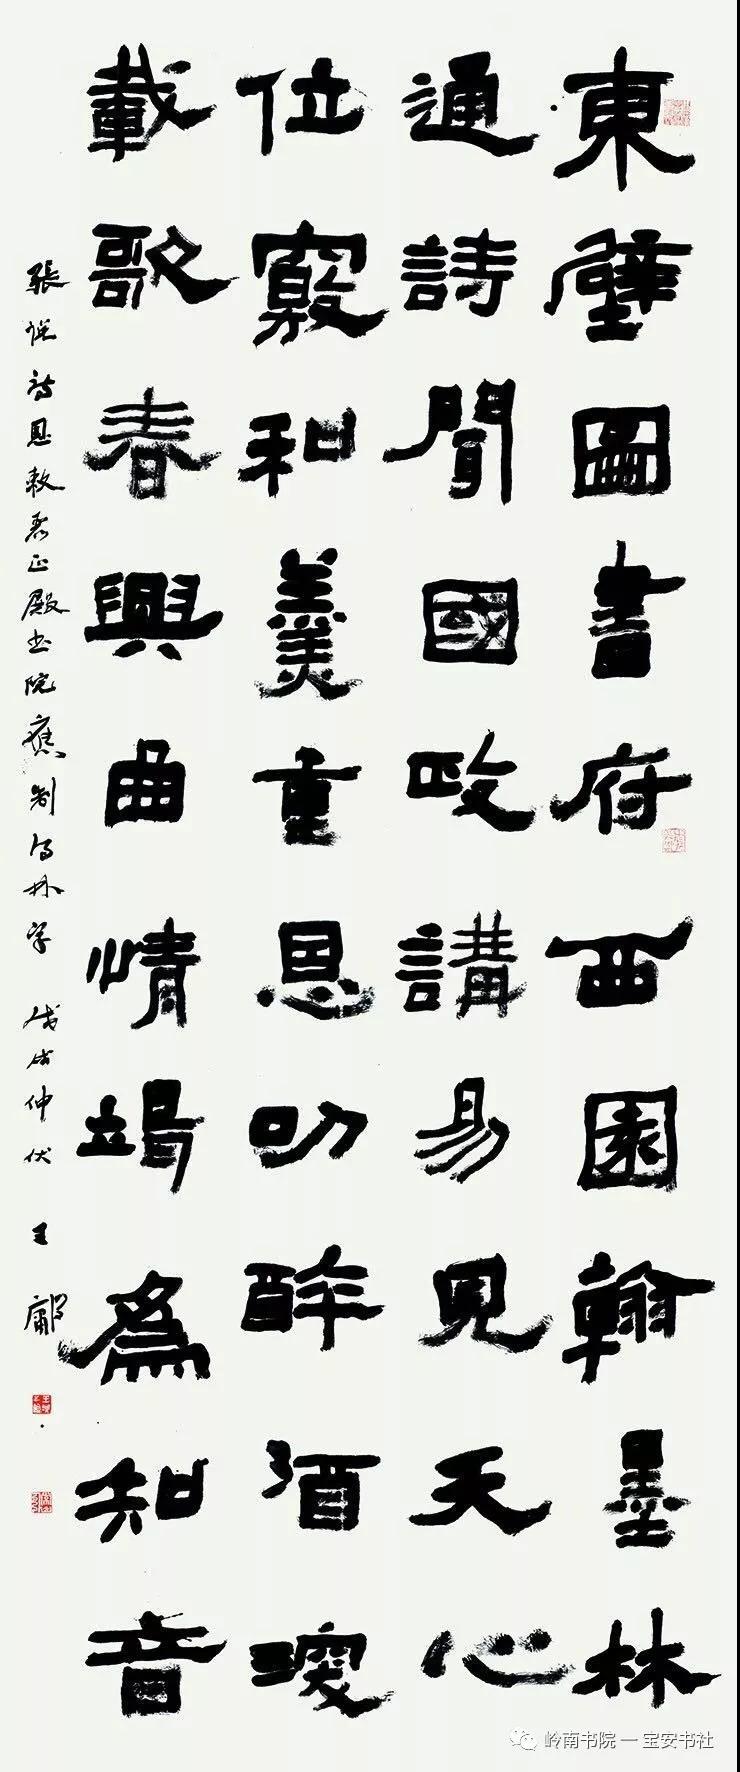 東壁圖書府西園翰墨林
通詩聞國政講易見天心
位竊和羹重恩叨醉酒深
載歌春興曲情竭為知音
張說詩恩敕麗正殿书院應制得林字 戊戌仲伏 王
岭南书院一宝安书社